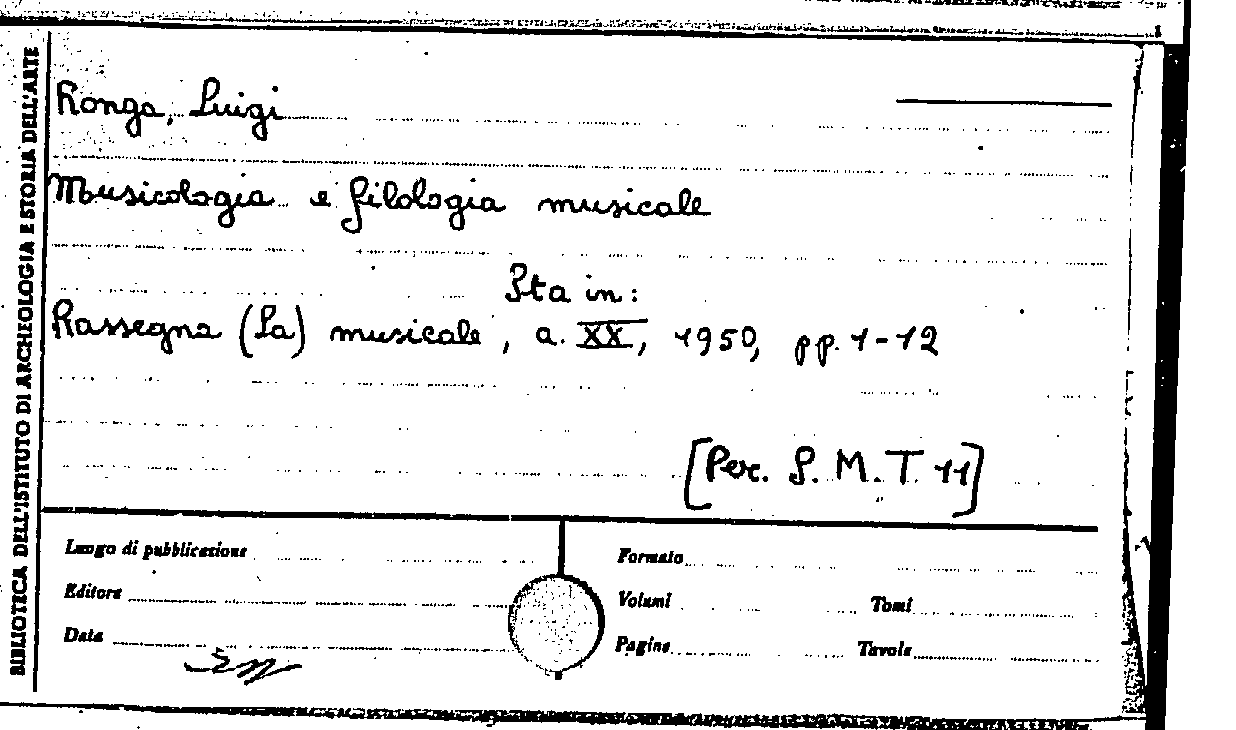 BIBLIOTECA DELL'ISTITUTO DI ARCHEOLOGIA E STORIA DELL'ARTE
Ronga, Luigi
Musicologia e filologia musicale
Sta in:
Rassegna (La) musicale, a. XX, 1950, pp. 1-12
[Per. S. M. T. 11]
Luogo di pubblicazione
Formato
Editore
Volumi Tomi
Data
Pagine Tavole